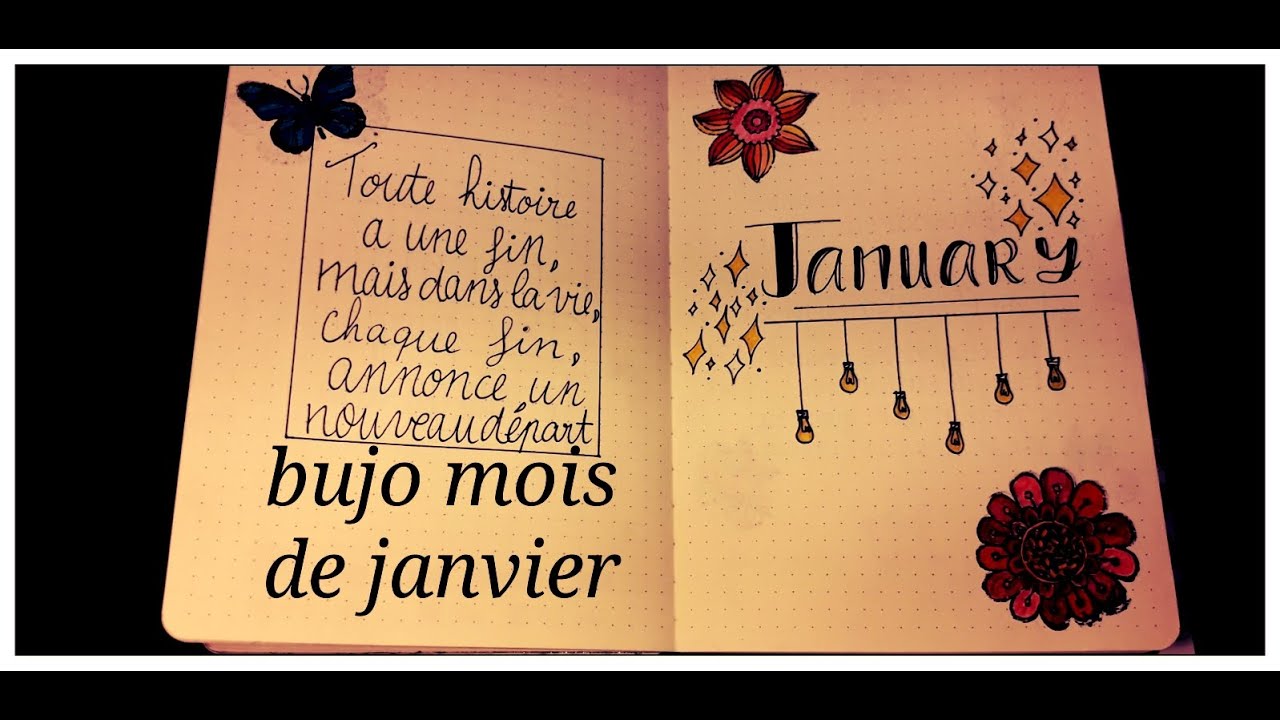 Toute histoire
a une fin,
mais dans la vie,
chaque fin,
annonce un
nouveau départ
bujo mois
de janvier
January